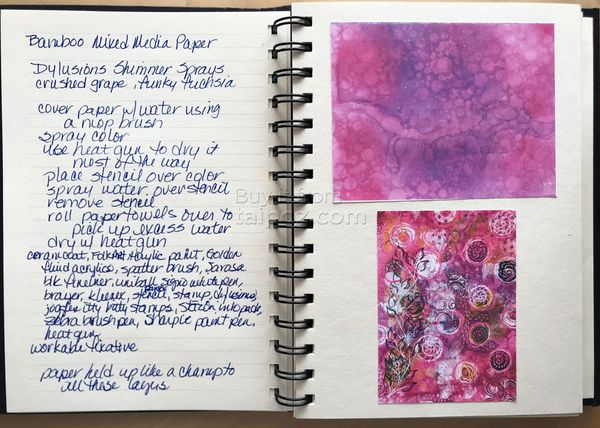 Bamboo Mixed Media Paper
Dylusions Shimmer Sprays
crushed grape, funky fuchsia
cover paper w/ water using
a mop brush
spray color
use heat gun to dry it
most of the way
place stencil over color
spray water over stencil
remove stencil
roll paper towels over to
pick up excess water
dry w/ heat gun
ceramcoat, FolkArt Acrylic paint, Golden
fluid acrylics, spatter brush, Sarasa
blk fineliner, uniball signo white pen,
brayer, kleenex, stencil, stamp, dylusions
itty bitty stamps, Stazon ink pads
zebra brush pen, Sharpie paint pen,
heat gun,
workable fixative
paper held up like a champ to
all these layers
Buy it from